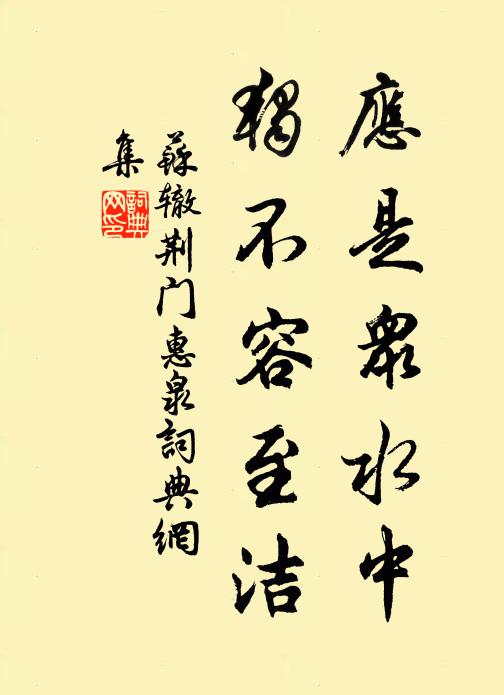 應是衆水中
獨不容至洁
蘇辙荆门惠泉詞典網
集
詞典网印